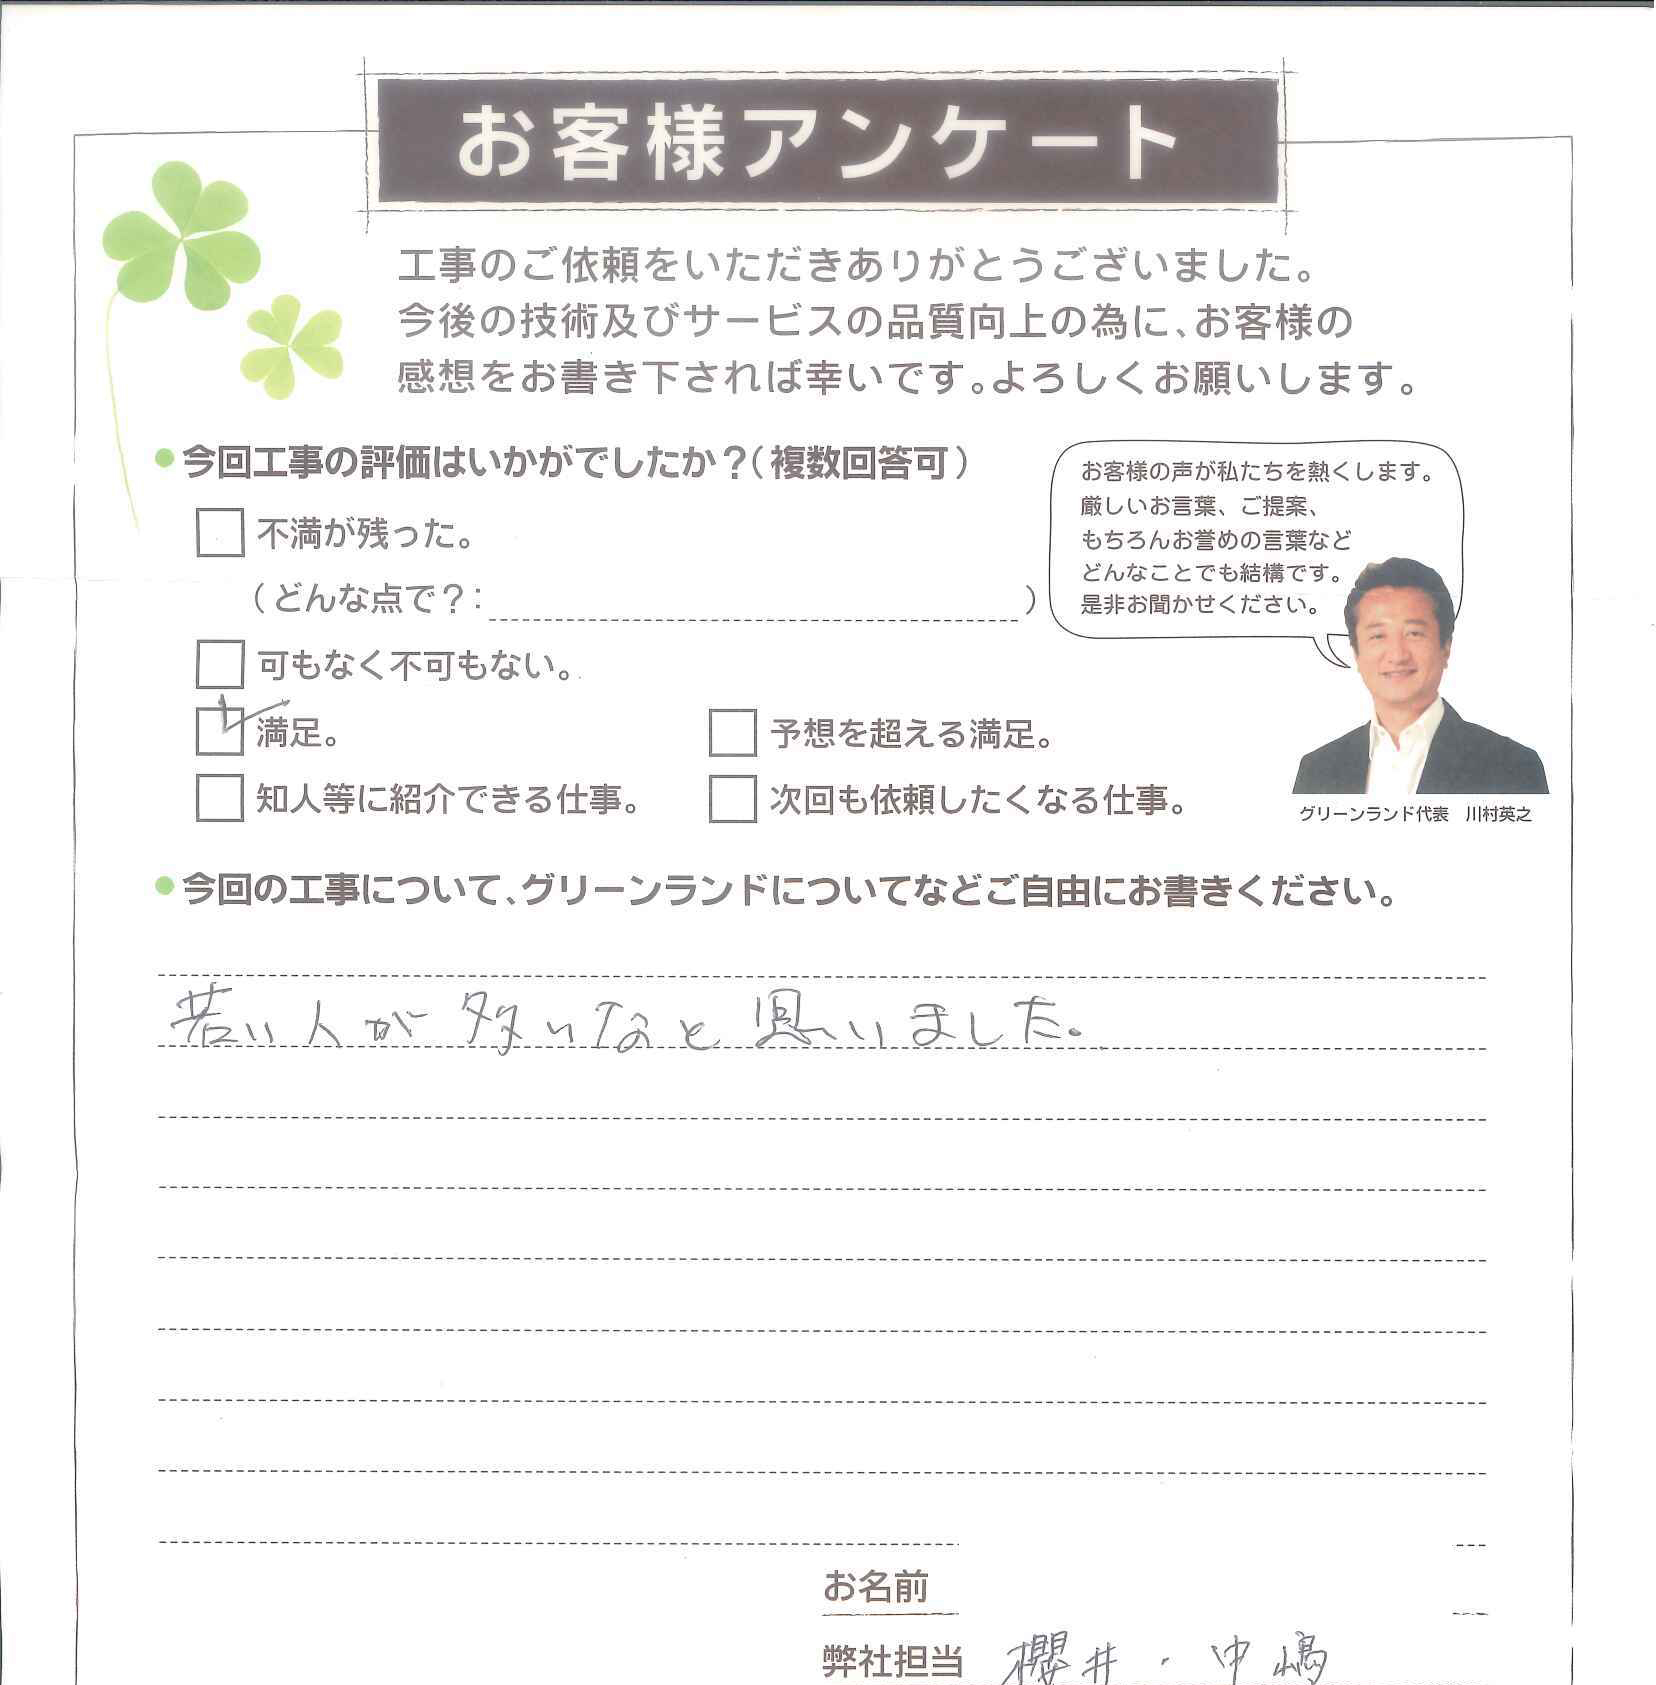 お客様アンケート
工事のご依頼をいただきありがとうございました。
今後の技術及びサービスの品質向上の為に、お客様の
感想をお書き下されば幸いです。よろしくお願いします。
今回工事の評価はいかがでしたか？（複数回答可）
不満が残った。
（どんな点で？：　）
可もなく不可もない。
満足。
予想を超える満足。
知人等に紹介できる仕事。
次回も依頼したくなる仕事。
お客様の声が私たちを熱くします。
厳しいお言葉、ご提案、
もちろんお誉めの言葉など
どんなことでも結構です。
是非お聞かせください。
グリーンランド代表　川村英之
今回の工事について、グリーンランドについてなどご自由にお書きください。
若い人が多いなと思いました。
お名前
弊社担当　櫻井・中嶋